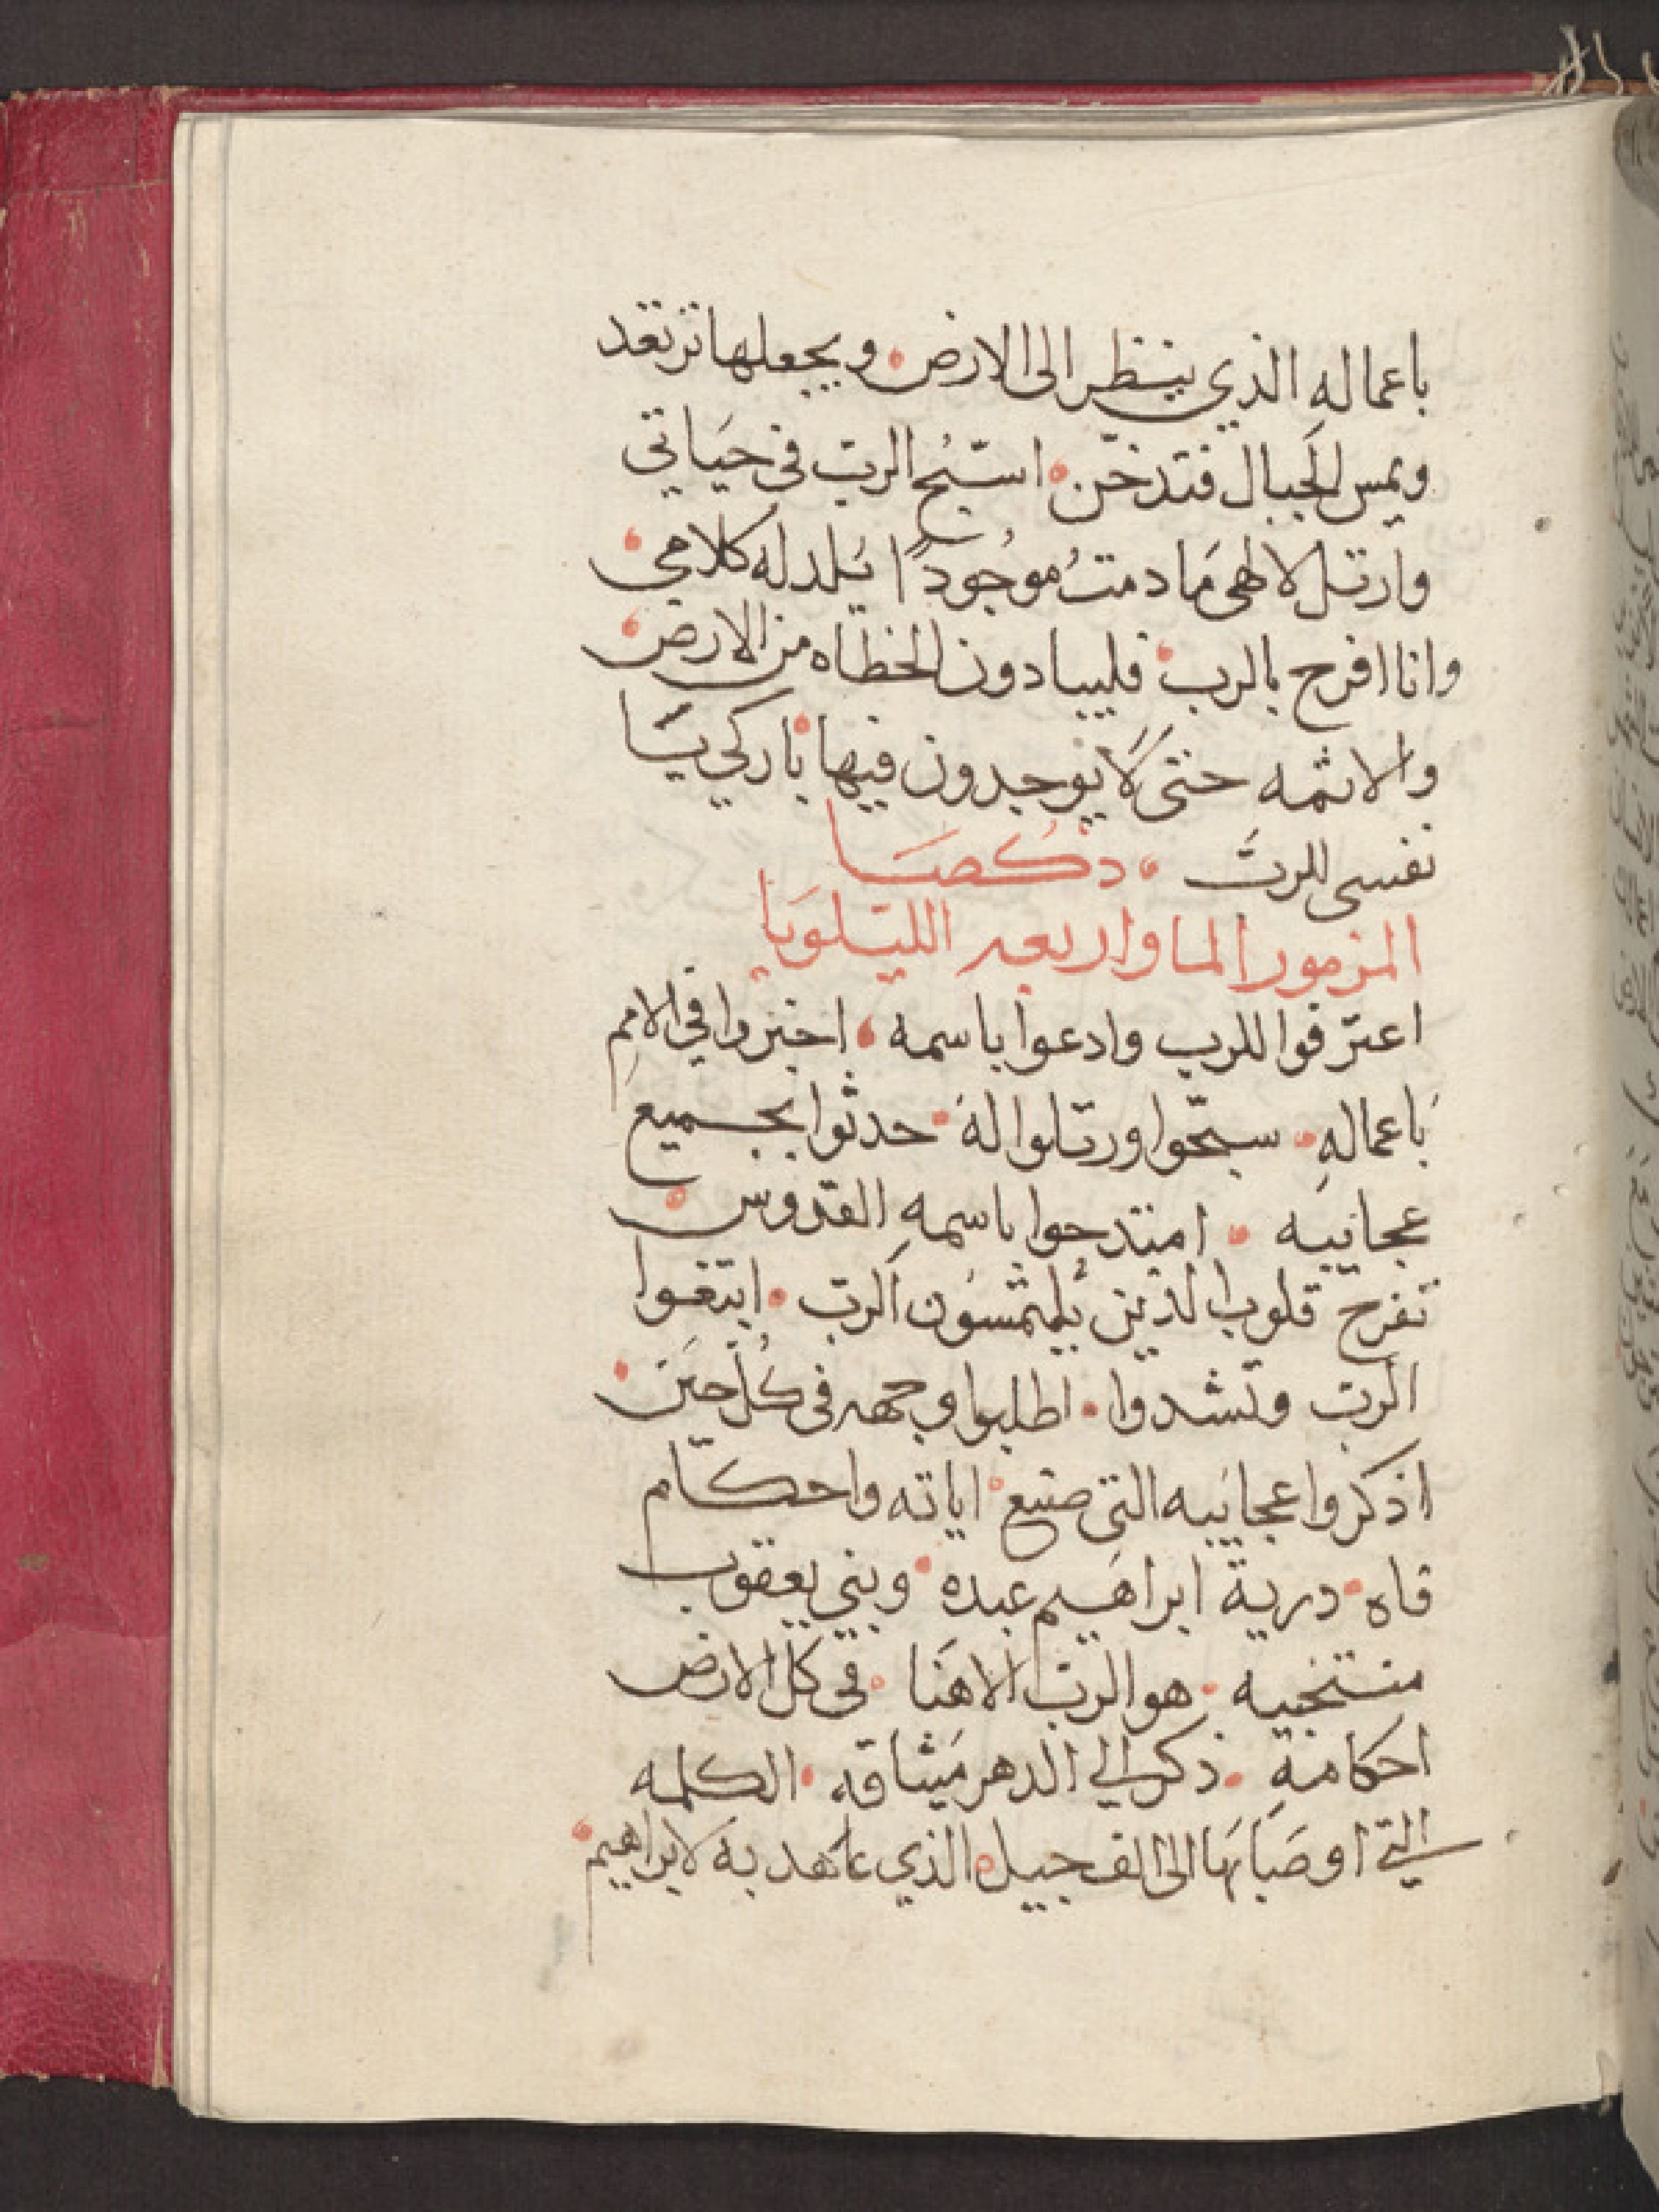 باعماله الذي ينظر الى الارض • ويجعلها ترتعد
ويمس الجبال فتدخن • اسبح الرب في حياتي
وارتل لالهي مَا دمتُ موجُودًا يلد له كلامي •
وانا افرح بالرب • فليبادون الخطاه من الارض •
والاثمه حتى لَا يوجدون فيها • باركي يَا
نفسي للربَّ • دُكصَا
المزمور الما واربعه الليلويَا
اعترفوا للرب وادعوا باسمه • اخبروا في الامم
باعمالهِ • سبّحوا ورتلوا لهُ • حدثوا بجميع
عجايبه • امتدحوا باسمهِ القدوس •
تفرح قلوب الذين يُلمتمسُون الرب • ابتغوا
الرب وتشدوا • اطلبوا وجهه في كُل حيَن •
اذكروا عجايبه التي صنع • اياته واحكام
فاه • درية ابراهيم عبده • وبني يعقوب
منتخبيه • هو الرب الاهَنا • في كل الارض
احكامهِ • ذكر الي الدهر مَيثاقه • الكلمه
التي اوصَا بهَا الى الف جيل • الذي عَاهد به لابراهيم •